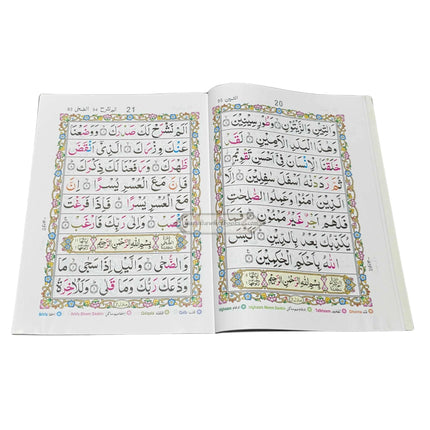 20
التين ٩٥
وَالتِّيْنِ وَالزَّيْتُوْنِ ۙ وَطُوْرِ سِيْنِيْنَ ۙ
وَهٰذَا الْبَلَدِ الْاَمِيْنِ ۙ لَقَدْ
خَلَقْنَا الْاِنْسَانَ فِيْٓ اَحْسَنِ تَقْوِيْمٍ
ثُمَّ رَدَدْنٰهُ اَسْفَلَ سٰفِلِيْنَ ۙ
اِلَّا الَّذِيْنَ اٰمَنُوْا وَعَمِلُوا الصّٰلِحٰتِ
فَلَهُمْ اَجْرٌ غَيْرُ مَمْنُوْنٍ فَمَا
يُكَذِّبُكَ بَعْدُ بِالدِّيْنِ اَلَيْسَ
اللّٰهُ بِاَحْكَمِ الْحٰكِمِيْنَ
بِسْمِ اللّٰهِ الرَّحْمٰنِ الرَّحِيْمِ
21
الم نشرح ٩٤ الضحى ٩٣
اَلَمْ نَشْرَحْ لَكَ صَدْرَكَ وَوَضَعْنَا
عَنْكَ وِزْرَكَ الَّذِيْٓ اَنْقَضَ
ظَهْرَكَ وَرَفَعْنَا لَكَ ذِكْرَكَ
فَاِنَّ مَعَ الْعُسْرِ يُسْرًا اِنَّ
مَعَ الْعُسْرِ يُسْرًا فَاِذَا فَرَغْتَ
فَانْصَبْ وَاِلٰى رَبِّكَ فَارْغَبْ
بِسْمِ اللّٰهِ الرَّحْمٰنِ الرَّحِيْمِ
وَالضُّحٰى وَالَّيْلِ اِذَا سَجٰى مَا
وَدَّعَكَ رَبُّكَ وَمَا قَلٰى وَلَلْاٰخِرَةُ